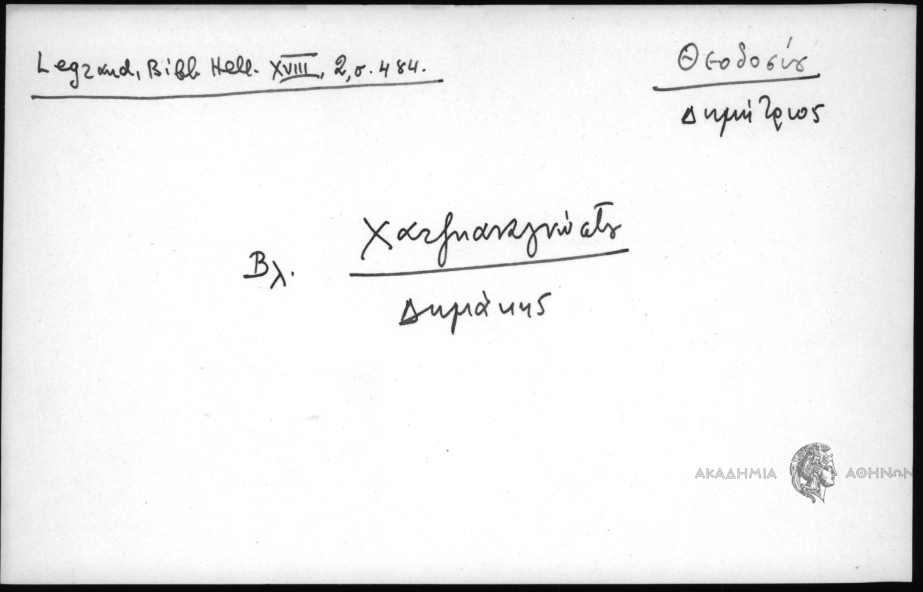 Legrand, Bibl. Hell. XVIII, 2, σ. 484.
Θεοδοσίου
Δημήτριος
Βλ. Χατζηαναγνώστου
Δημάκης
ΑΚΑΔΗΜΙΑ ΑΘΗΝΩΝ